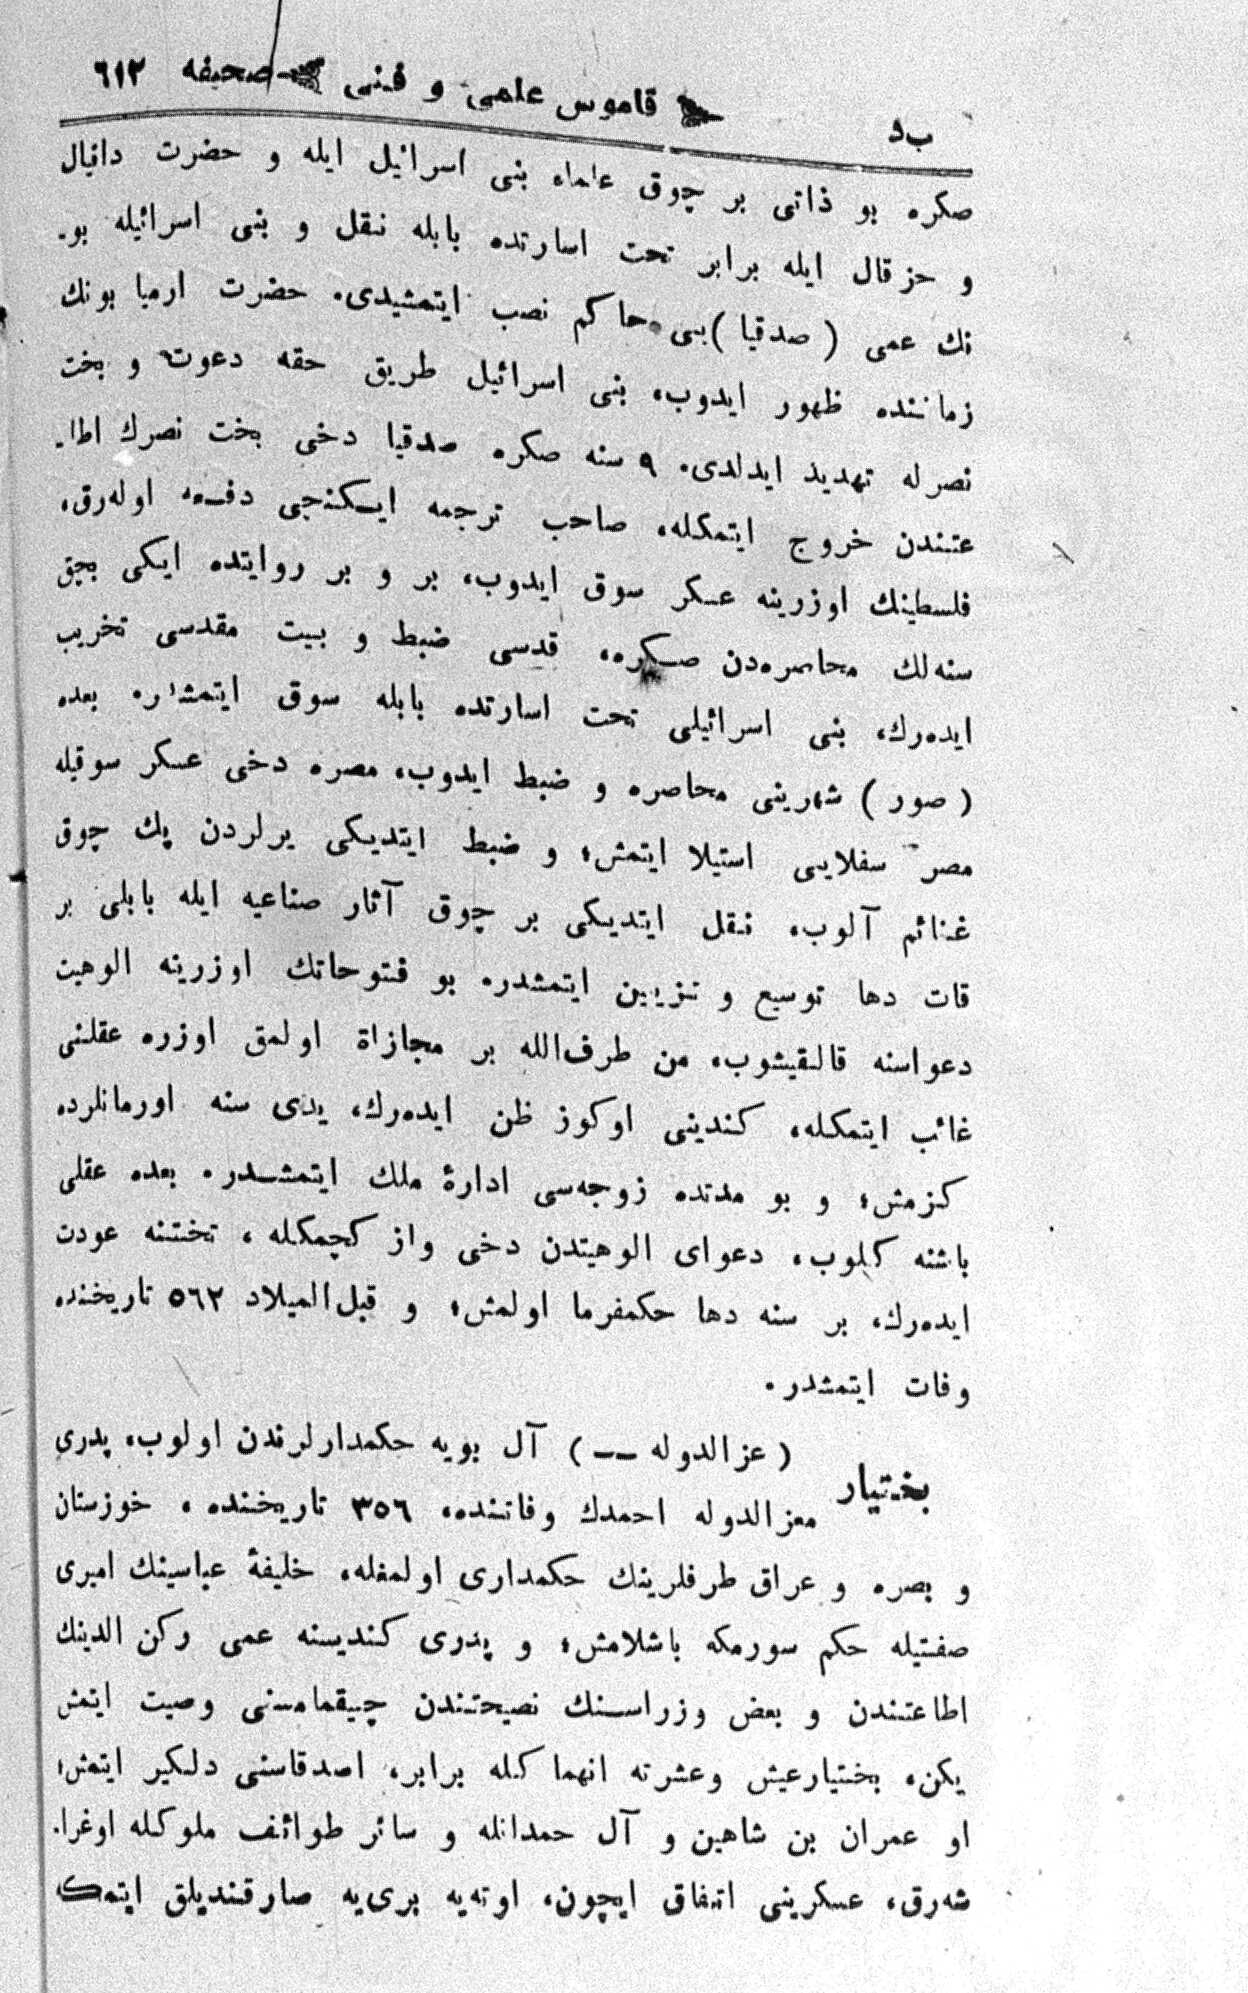 ب‌د قاموس علمی و فنی صحیفه ٦١٢
صکره بو ذاتی بر چوق علماء بنی اسرائیل ایله و حضرت دانیال
و حزقال ایله برابر تحت اسارتده بابله نقل و بنی اسرائیله بو-
نك عمی (صدقیا) یی حاکم نصب ایتمشیدی. حضرت ارمیا بونك
زماننده ظهور ایدوب، بنی اسرائیل طریق حقه دعوت و بخت
نصرله تهدید ایدلدی. ٩ سنه صکره صدقیا دخی بخت نصرك اطا-
عتندن خروج ایتمکله، صاحب ترجمه ایکنجی دفعه اوله‌رق،
فلسطینك اوزرینه عسکر سوق ایدوب، بر و بر روایتده ایکی بچق
سنه‌لك محاصره‌دن صکره، قدسی ضبط و بیت مقدسی تخریب
ایده‌رك، بنی اسرائیلی تحت اسارتده بابله سوق ایتمشدر. بعده
(صور) شهرینی محاصره و ضبط ایدوب، مصره دخی عسکر سوقیله
مصر سفلایی استیلا ایتمش؛ و ضبط ایتدیکی یرلردن پك چوق
غنائم آلوب، نقل ایتدیکی بر چوق آثار صناعیه ایله بابلی بر
قات دها توسیع و تزیین ایتمشدر. بو فتوحاتك اوزرینه الوهیت
دعواسنه قالقیشوب، من طرف‌الله بر مجازاة اولمق اوزره عقلنی
غائب ایتمکله، کندینی اوکوز ظن ایده‌رك، یدی سنه اورمانلرده
کزمش؛ و بو مدتده زوجه‌سی ادارۀ ملك ایتمشدر. بعده عقلی
باشنه کلوب، دعوای الوهیتدن دخی واز کچمکله، تختنه عودت
ایده‌رك، بر سنه دها حکمفرما اولمش؛ و قبل‌المیلاد ٥٦٢ تاریخنده
وفات ایتمشدر.
بختیار (عزالدوله ــ) آل بویه حکمدارلرندن اولوب، پدری
معزالدوله احمدك وفاتنده، ٣٥٦ تاریخنده، خوزستان
و بصره و عراق طرفلرینك حکمداری اولمغله، خلیفۀ عباسینك امیری
صفتیله حکم سورمکه باشلامش؛ و پدری کندیسنه عمی رکن الدینك
اطاعتندن و بعض وزراسنك نصیحتندن چیقمامسنی وصیت ایتمش
یکن، بختیار عیش و عشرته انهماکله برابر، اصدقاسنی دلکیر ایتمش؛
او عمران بن شاهین و آل حمدانله و سائر طوائف ملوکله اوغرا-
شه‌رق، عسکرینی اتفاق ایچون، اوته‌یه بری‌یه صارقندیلق ایتمك